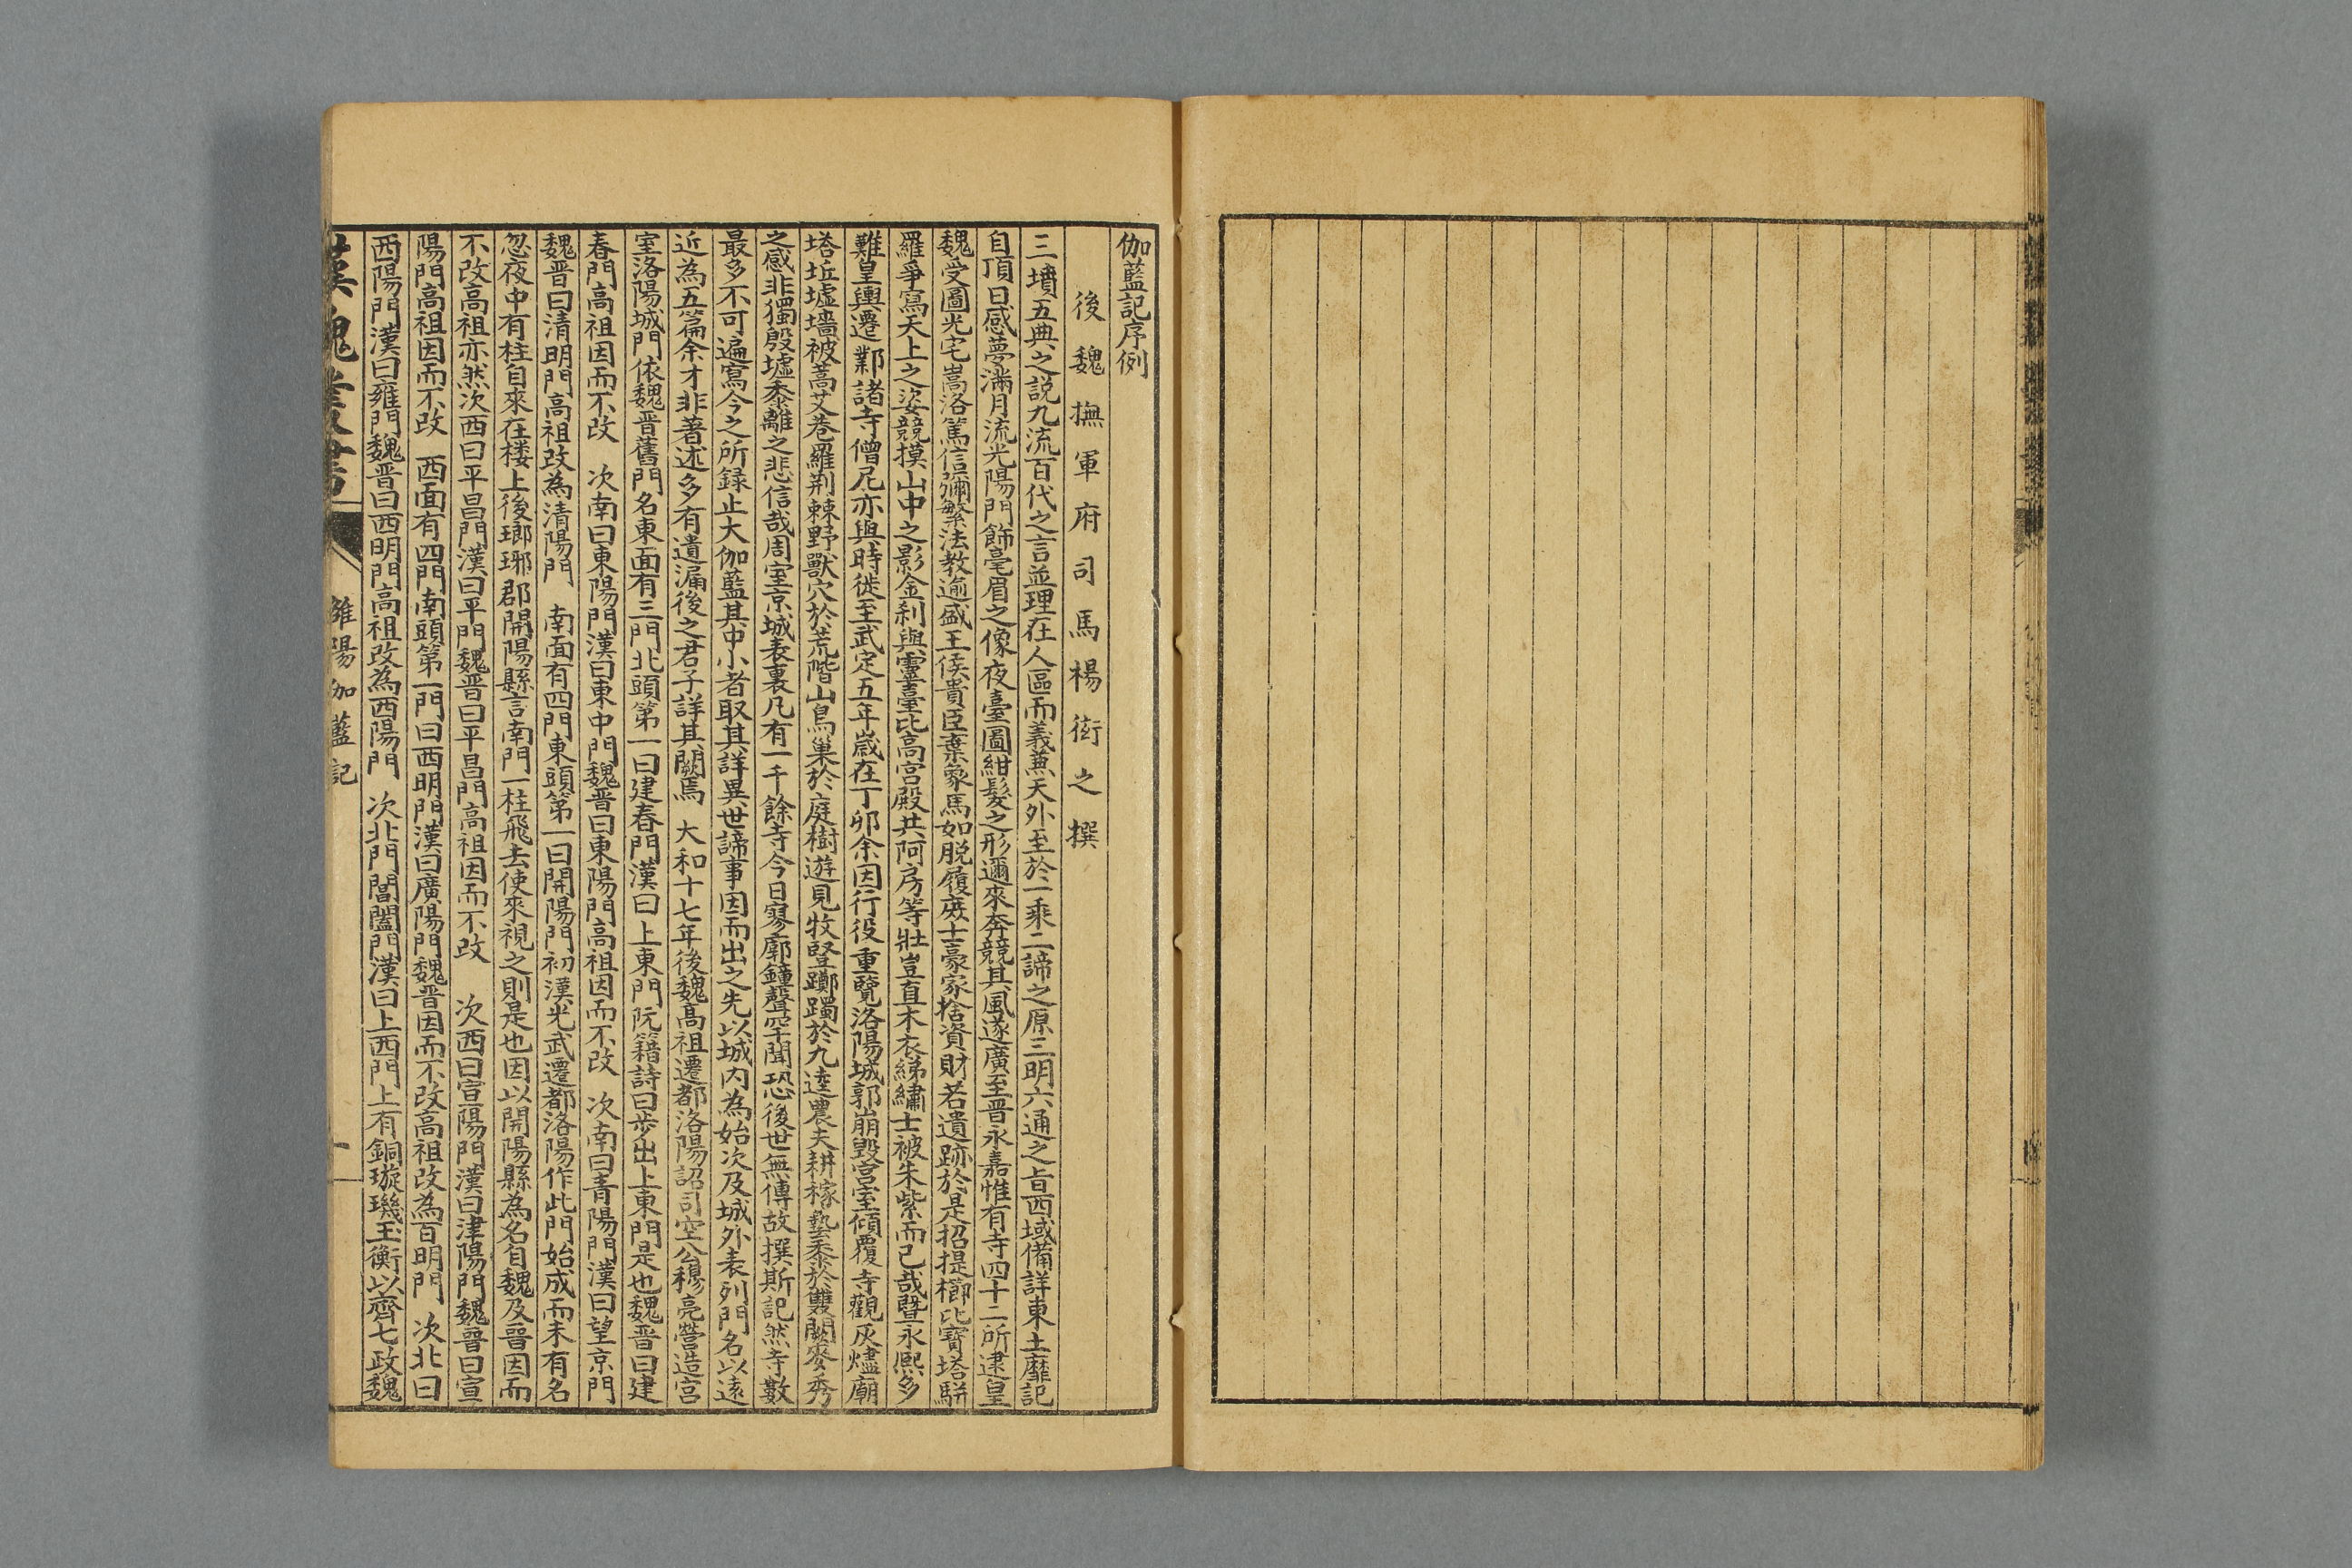 伽藍記序例
後魏撫軍府司馬楊衒之撰
三墳五典之説九流百代之言並理在人區而義兼天外至於一乘二諦之原三明六通之旨西域備詳東土靡記
自頂日感夢滿月流光陽門飾毫眉之像夜臺圖紺髮之形邇來奔競其風遂廣至晉永嘉惟有寺四十二所逮皇
魏受圖光宅嵩洛篤信彌繁法教逾盛王侯貴臣棄象馬如脱履庶士豪家捨資財若遺跡於是招提櫛比寶塔駢
羅爭寫天上之姿競摸山中之影金刹與靈臺比高宮殿共阿房等壯豈直木衣綈繡士被朱紫而已哉暨永熙多
難皇輿遷鄴諸寺僧尼亦與時徙至武定五年歳在丁卯余因行役重覽洛陽城郭崩毀宮室傾覆寺觀灰燼廟
塔坵墟墻被蒿艾巷羅荆棘野獸穴於荒階山鳥巢於庭樹遊見牧豎躑躅於九逵農夫耕稼藝黍於雙闕麥秀
之感非獨殷墟黍離之悲信哉周室京城表裏凡有一千餘寺今日寥廓鐘聲罕聞恐後世無傳故撰斯記然寺數
最多不可遍寫今之所録止大伽藍其中小者取其詳異世諦事因而出之先以城内為始次及城外表列門名以遠
近為五篇余才非著述多有遺漏後之君子詳其闕焉　大和十七年後魏高祖遷都洛陽詔司空公穆亮營造宮
室洛陽城門依魏晉舊門名東面有三門北頭第一曰建春門漢曰上東門阮籍詩曰步出上東門是也魏晉曰建
春門高祖因而不改　次南曰東陽門漢曰東中門魏晉曰東陽門高祖因而不改　次南曰青陽門漢曰望京門
魏晉曰清明門高祖改為清陽門　南面有四門東頭第一曰開陽門初漢光武遷都洛陽作此門始成而未有名
忽夜中有柱自來在楼上後瑯琊郡開陽縣言南門一柱飛去使來視之則是也因以開陽縣為名自魏及晉因而
不改高祖亦然次西曰平昌門漢曰平門魏晉曰平昌門高祖因而不改　次西曰宣陽門漢曰津陽門魏晉曰宣
陽門高祖因而不改　西面有四門南頭第一門曰西明門漢曰廣陽門魏晉因而不改高祖改為百明門　次北曰
西陽門漢曰雍門魏晉曰西明門高祖改為西陽門　次北門閶闔門漢曰上西門上有銅璇璣玉衡以齊七政魏
漢魏叢書
雒陽伽藍記